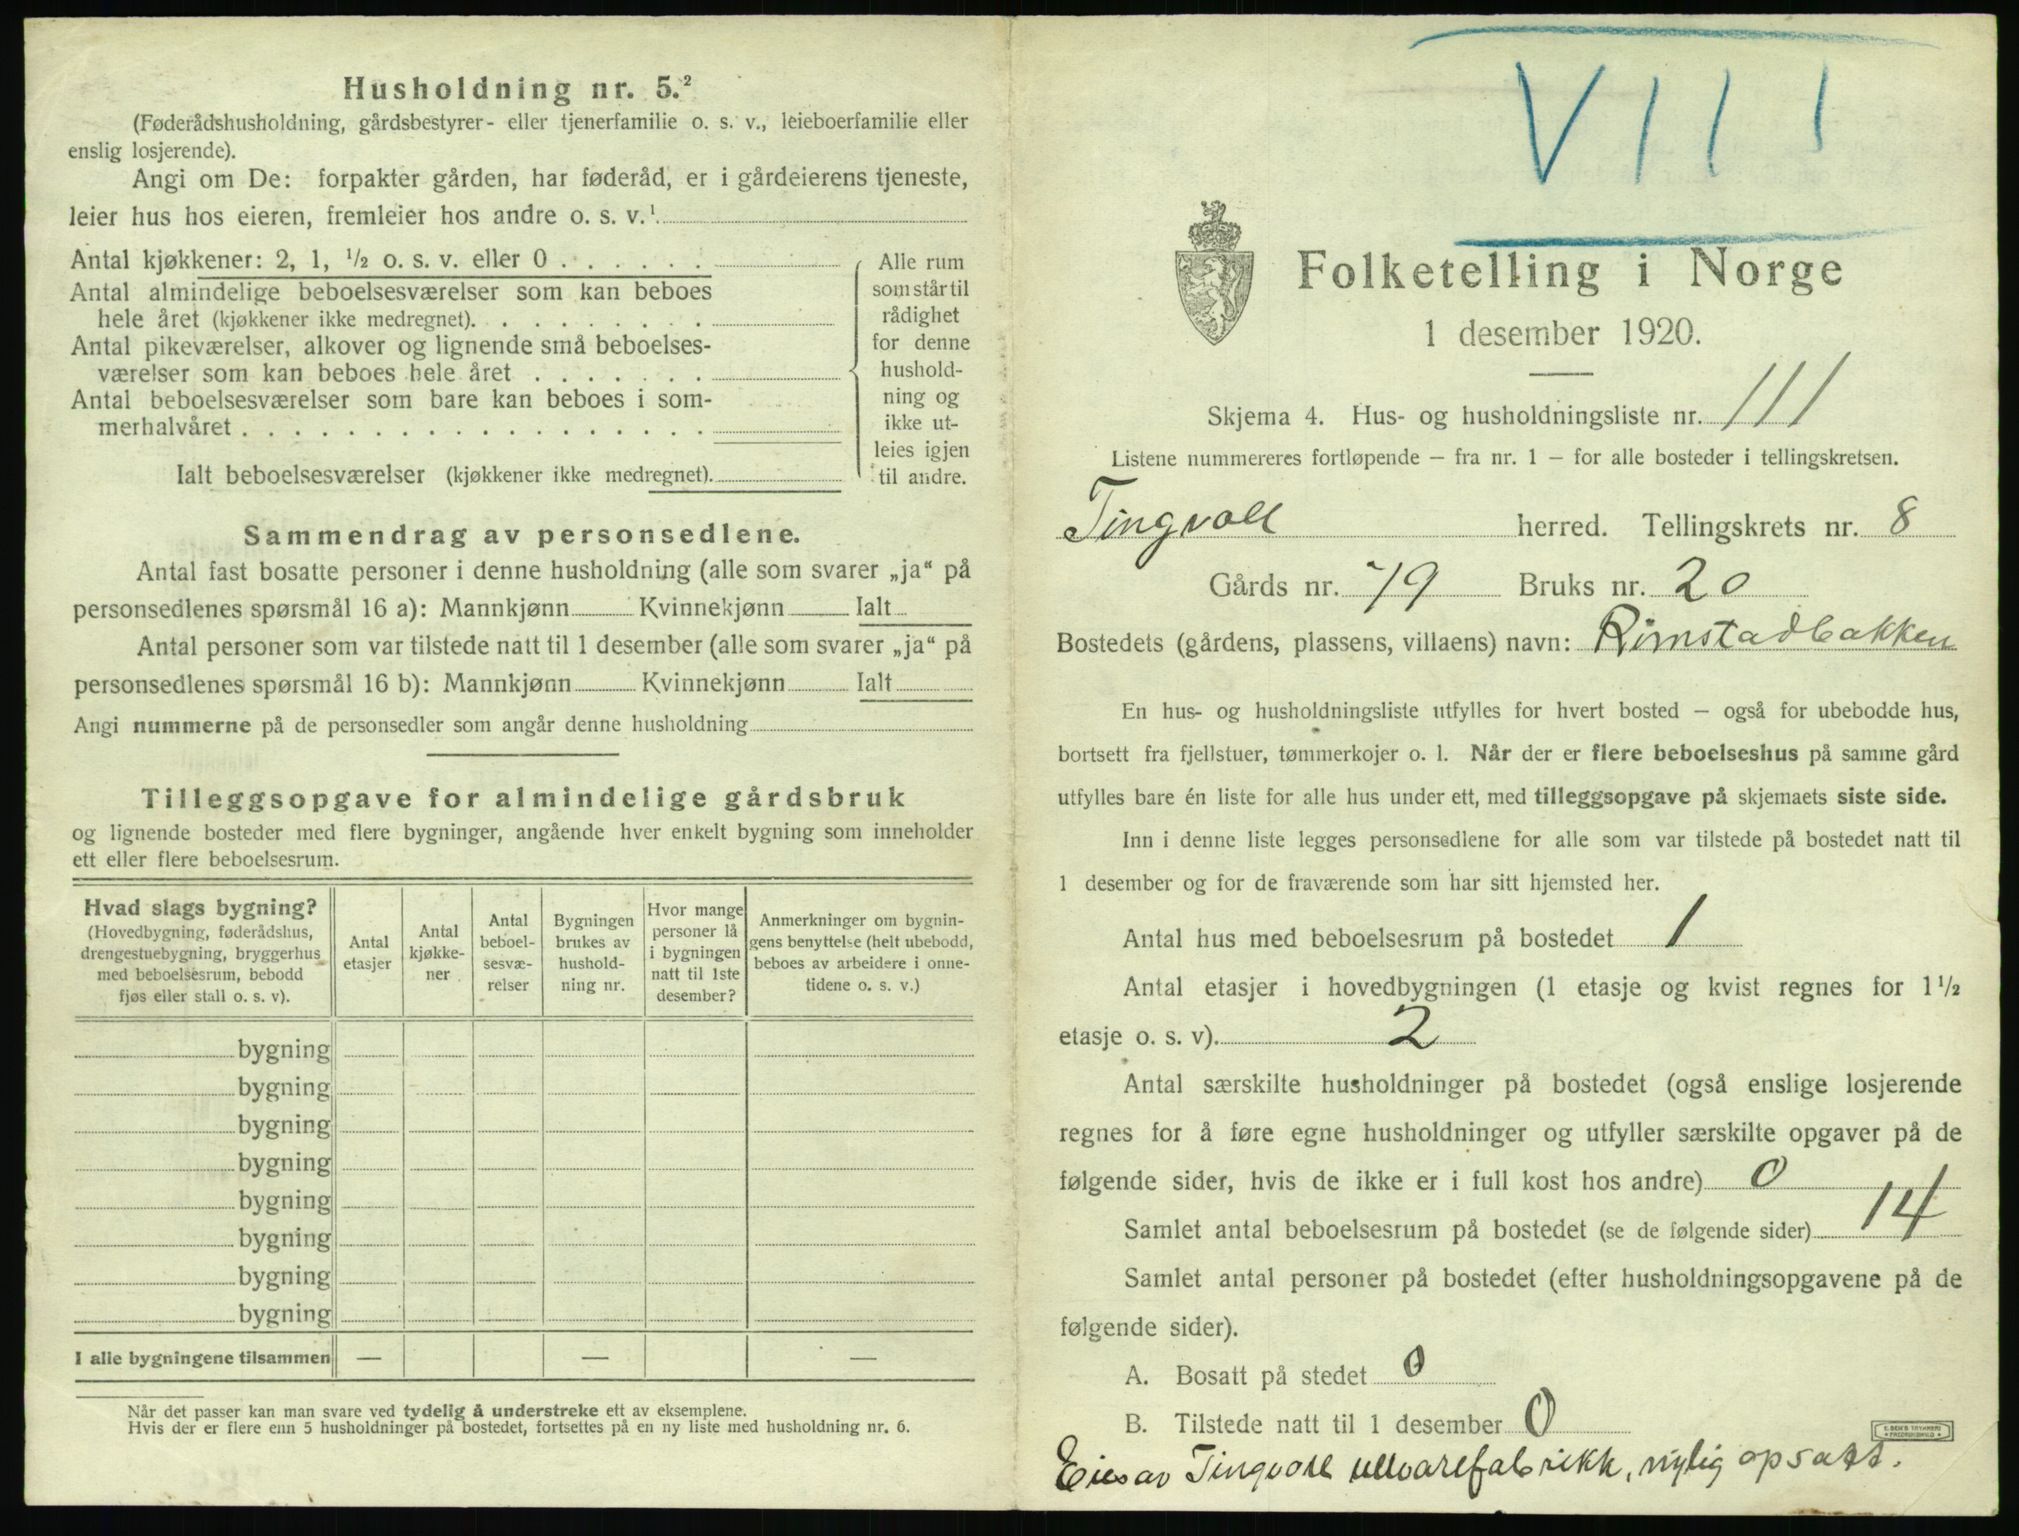 Husholdning nr. 5.²
(Føderådshusholdning, gårdsbestyrer- eller tjenerfamilie o. s. v., leieboerfamilie eller
enslig losjerende).
Angi om De: forpakter gården, har føderåd, er i gårdeierens tjeneste,
leier hus hos eieren, fremleier hos andre o. s. v.¹
Antal kjøkkener: 2, 1, ½ o. s. v. eller 0 . . . . . .
Antal almindelige beboelsesværelser som kan beboes
hele året (kjøkkener ikke medregnet). . . . . . . . .
Antal pikeværelser, alkover og lignende små beboelses-
værelser som kan beboes hele året . . . . . . .
Antal beboelsesværelser som bare kan beboes i som-
merhalvåret . . . . . . . . . . . . . . . . . .
Ialt beboelsesværelser (kjøkkener ikke medregnet).
Alle rum
som står til
rådighet
for denne
hushold-
ning og
ikke ut-
leies igjen
til andre.
Sammendrag av personsedlene.
Antal fast bosatte personer i denne husholdning (alle som svarer „ja“ på
personsedlenes spørsmål 16 a): Mannkjønn Kvinnekjønn Ialt
Antal personer som var tilstede natt til 1 desember (alle som svarer „ja“ på
personsedlenes spørsmål 16 b): Mannkjønn Kvinnekjønn Ialt
Angi nummerne på de personsedler som angår denne husholdning
Tilleggsopgave for almindelige gårdsbruk
og lignende bosteder med flere bygninger, angående hver enkelt bygning som inneholder
ett eller flere beboelsesrum.
Hvad slags bygning?
(Hovedbygning, føderådshus,
drengestuebygning, bryggerhus
med beboelsesrum, bebodd
fjøs eller stall o. s. v).
Antal
etasjer
Antal
kjøkke-
ner
Antal
beboel-
sesvæ-
relser
Bygningen
brukes av
hushold-
ning nr.
Hvor mange
personer lå
i bygningen
natt til 1ste
desember?
Anmerkninger om bygnin-
gens benyttelse (helt ubebodd,
beboes av arbeidere i onne-
tidene o. s. v.)
bygning
bygning
bygning
bygning
bygning
bygning
bygning
bygning
I alle bygningene tilsammen — — —
Når det passer kan man svare ved tydelig å understreke ett av eksemplene.
Hvis der er flere enn 5 husholdninger på bostedet, fortsettes på en ny liste med husholdning nr. 6.
VIII
Folketelling i Norge
1 desember 1920.
Skjema 4. Hus- og husholdningsliste nr. 111
Listene nummereres fortløpende – fra nr. 1 – for alle bosteder i tellingskretsen.
Tingvoll herred. Tellingskrets nr. 8
Gårds nr. 79 Bruks nr. 20
Bostedets (gårdens, plassens, villaens) navn: Rimstadbakken
En hus- og husholdningsliste utfylles for hvert bosted – også for ubebodde hus,
bortsett fra fjellstuer, tømmerkojer o. l. Når der er flere beboelseshus på samme gård
utfylles bare én liste for alle hus under ett, med tilleggsopgave på skjemaets siste side.
Inn i denne liste legges personsedlene for alle som var tilstede på bostedet natt til
1 desember og for de fraværende som har sitt hjemsted her.
Antal hus med beboelsesrum på bostedet 1
Antal etasjer i hovedbygningen (1 etasje og kvist regnes for 1½
etasje o. s. v). 2
Antal særskilte husholdninger på bostedet (også enslige losjerende
regnes for å føre egne husholdninger og utfyller særskilte opgaver på de
følgende sider, hvis de ikke er i full kost hos andre) 0
Samlet antal beboelsesrum på bostedet (se de følgende sider) 14
Samlet antal personer på bostedet (efter husholdningsopgavene på de
følgende sider).
A. Bosatt på stedet 0
B. Tilstede natt til 1 desember 0
Eies av Tingvoll ullvarefabrikk, nylig opsatt.